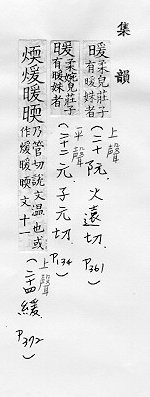 集韻
暖 柔皃莊子有暖姝者
（二十阮．火遠切．P361）
上聲
暖 柔婉皃莊子有暖姝者
（二十二元．于元切．P134）
平聲
煗煖暖㬉 乃管切說文溫也或作煖暖㬉文十一
（二十四緩．P372）
上聲